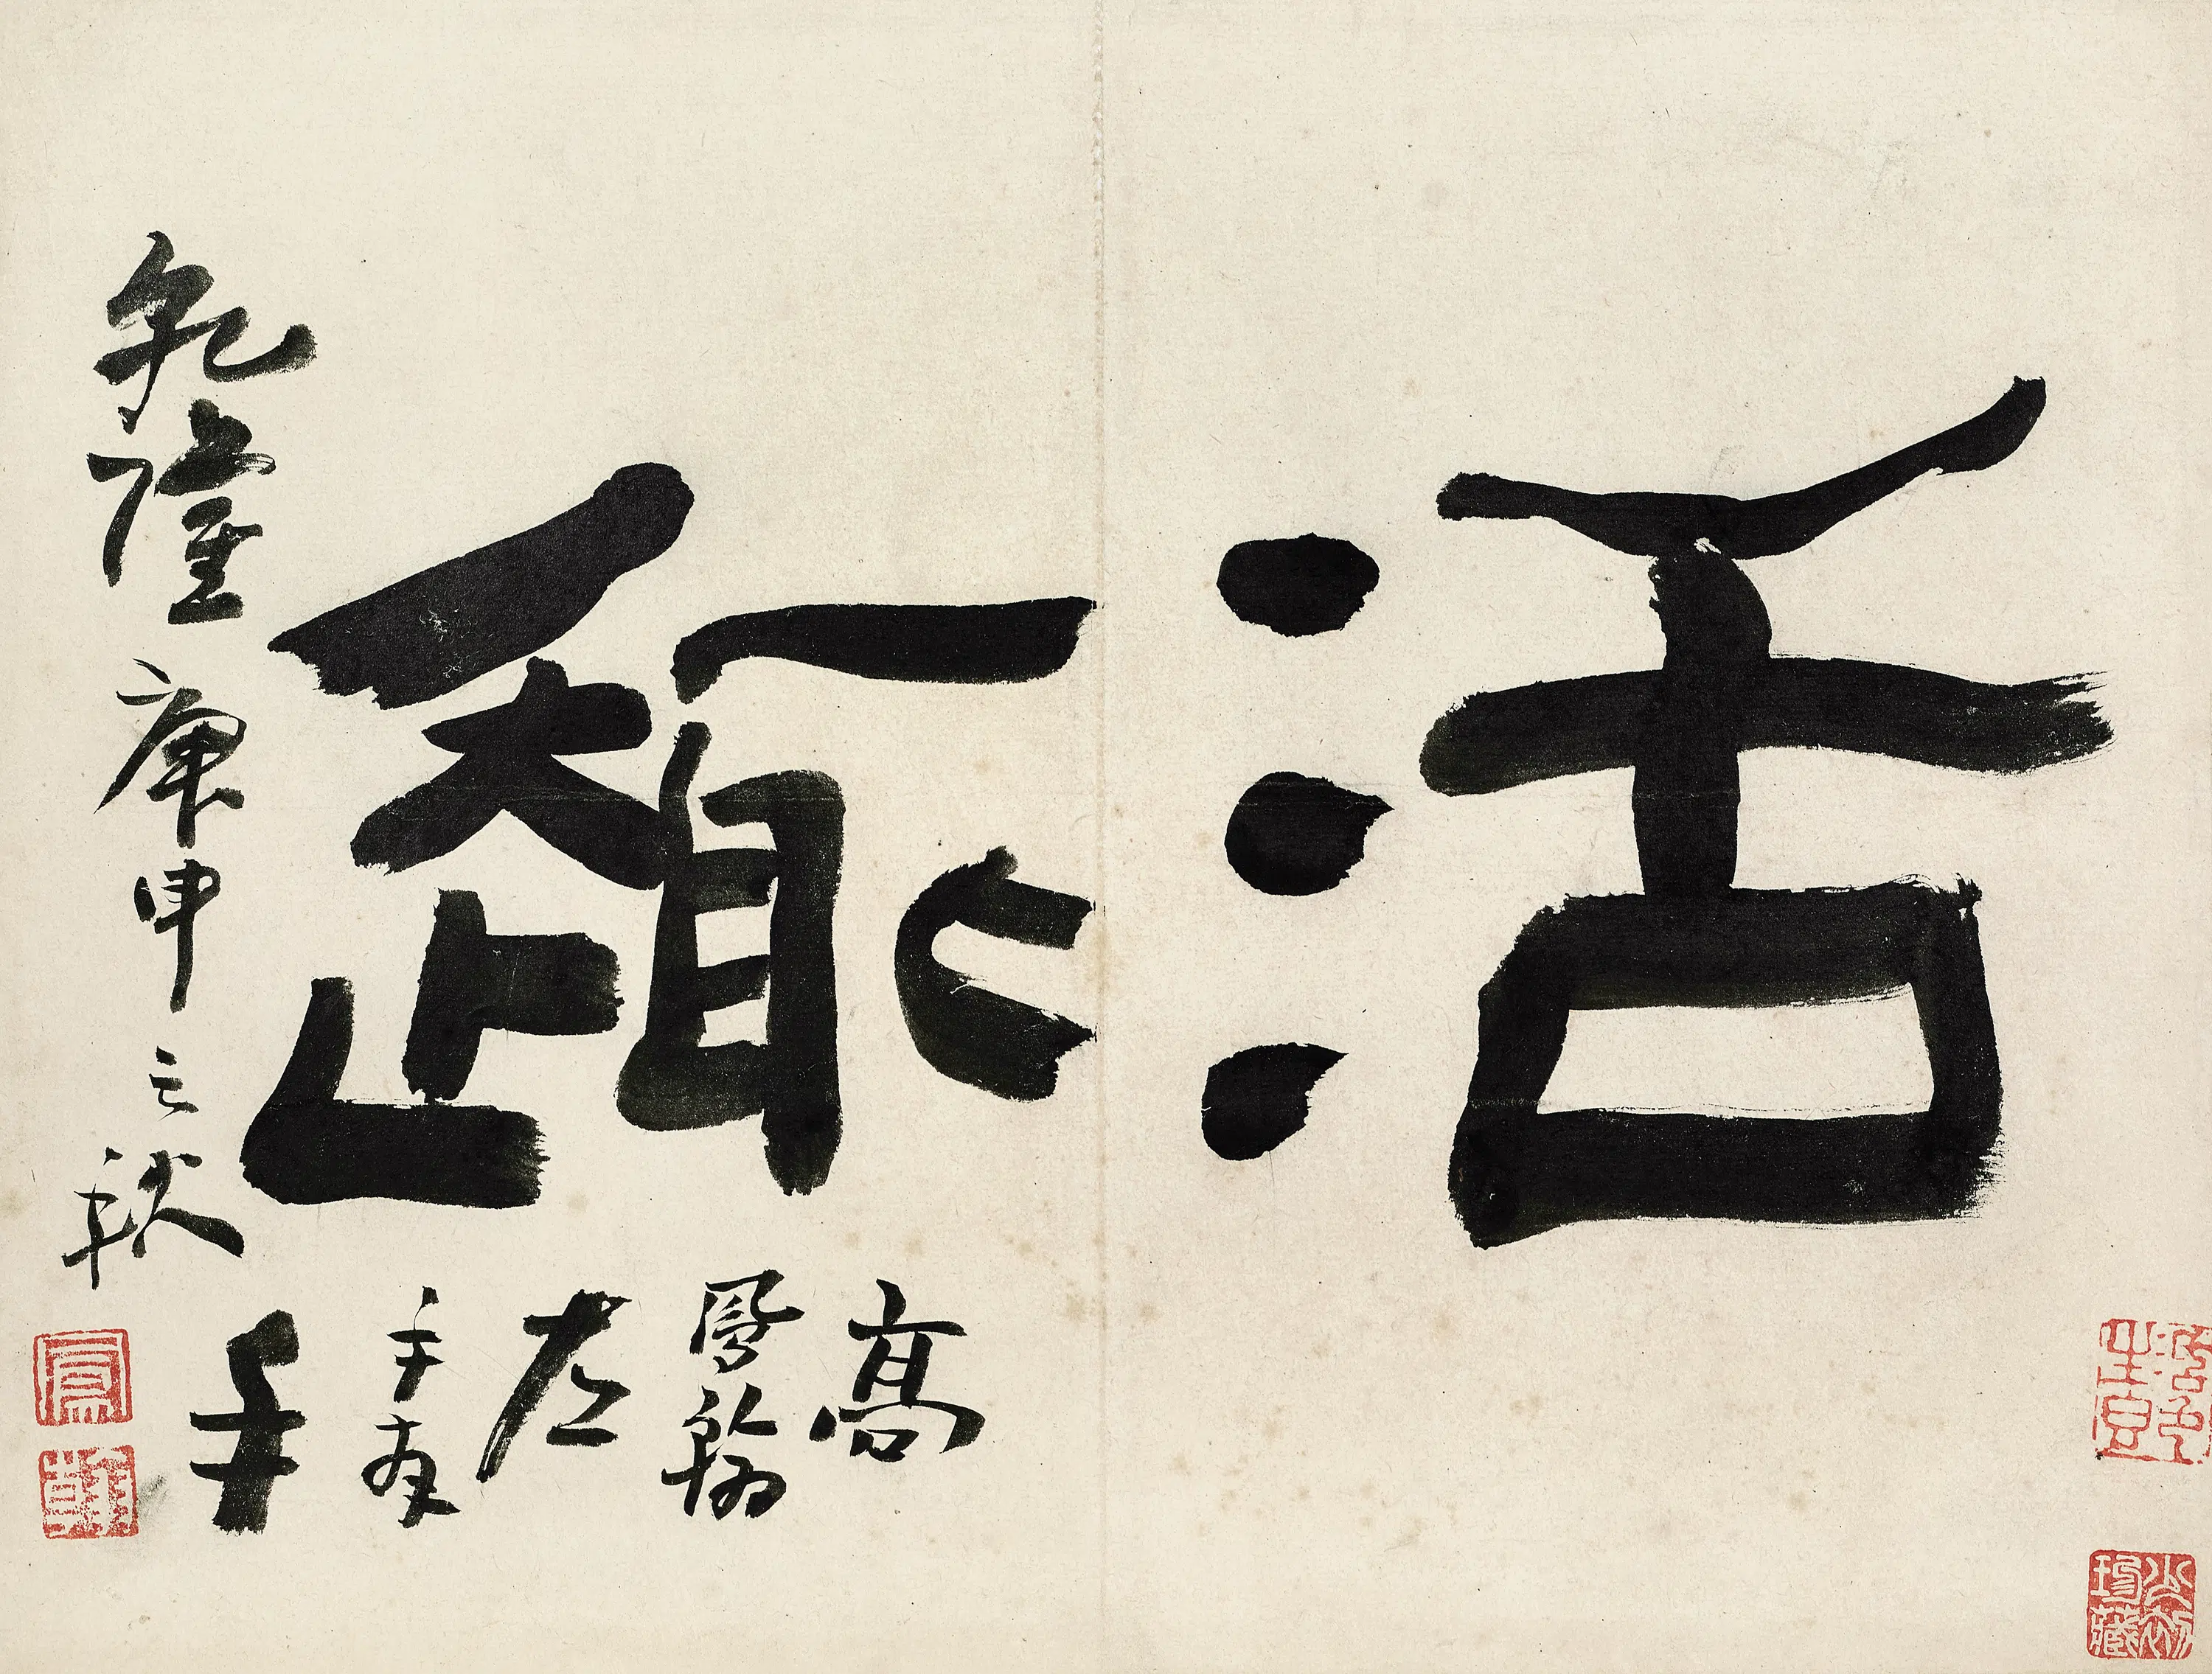 活趣
乾隆庚申之秋
高
鳳翰
左
手